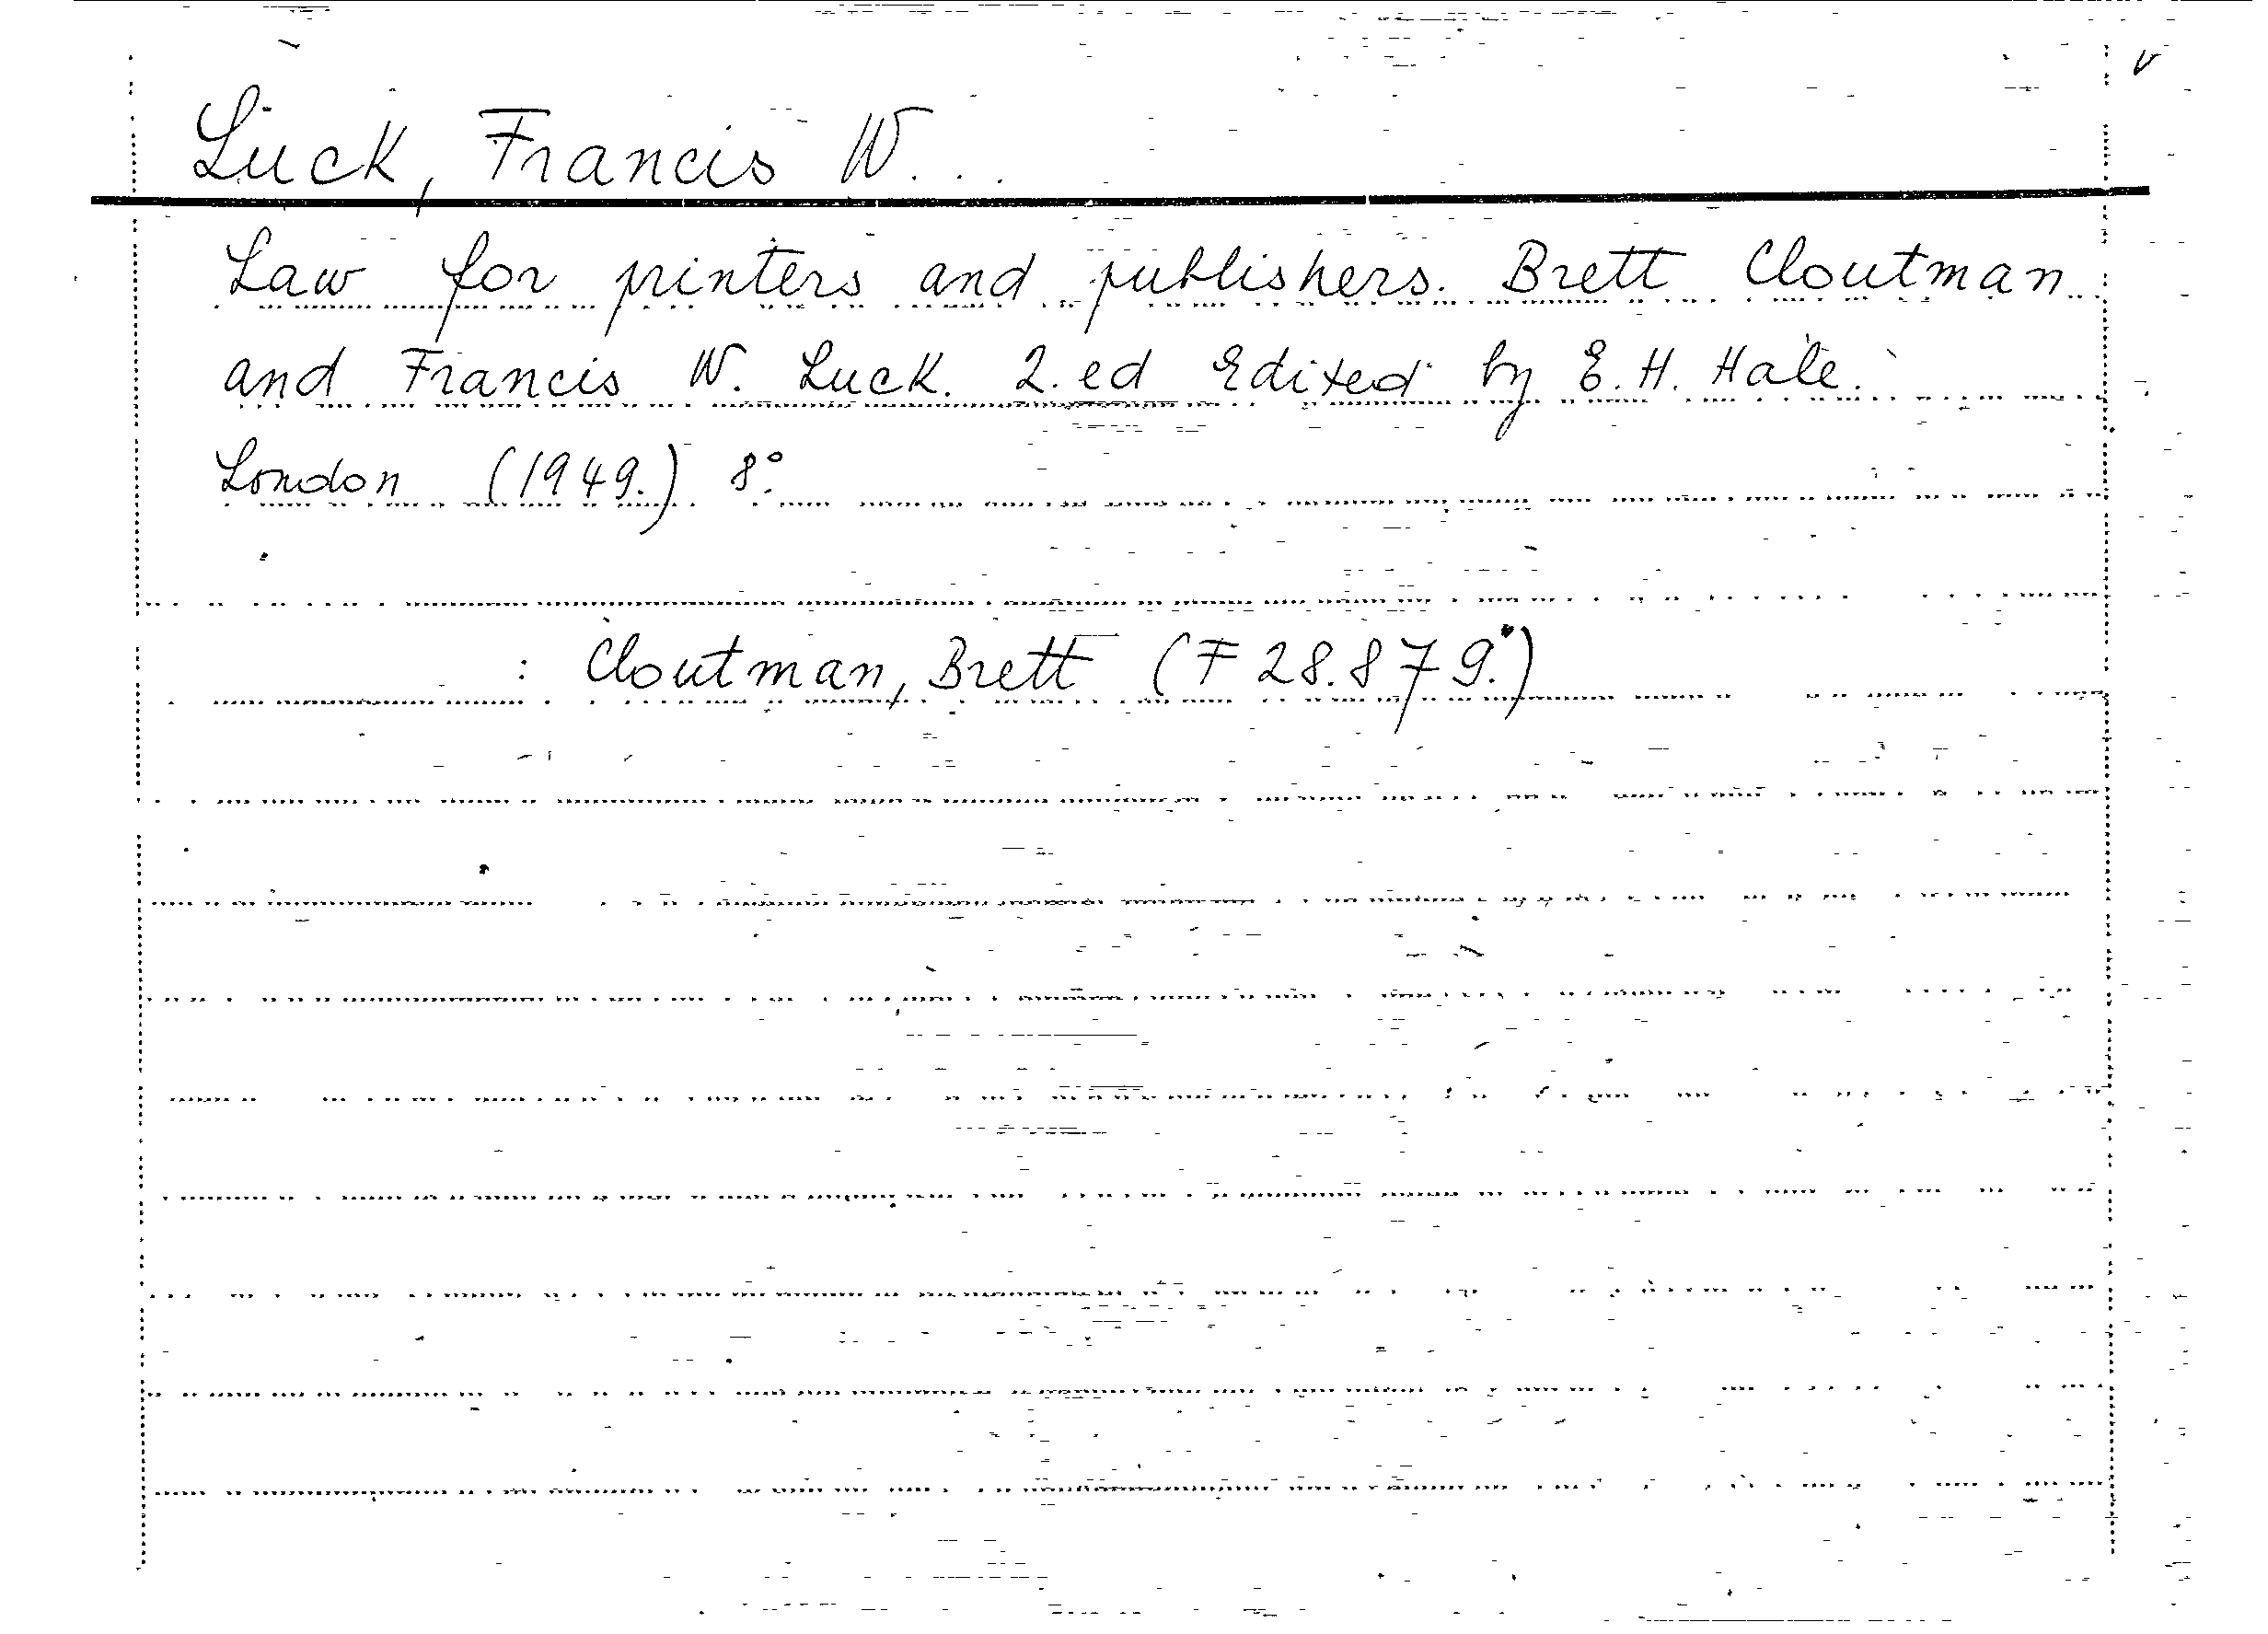 Luck, Francis W...
Law for printers and publishers. Brett Cloutman
and Francis W. Luck. 2. ed Edited by E. H. Hale.
London (1949.) 8°.
: Cloutman, Brett (F 28.879.)